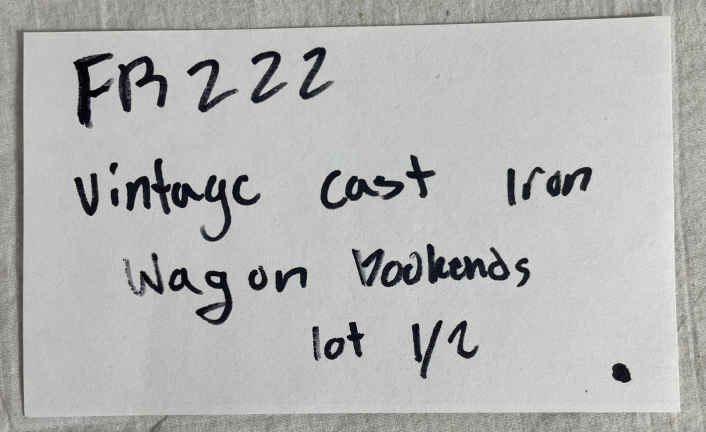 FR222
Vintage cast Iron
Wagon bookends
lot 1/2